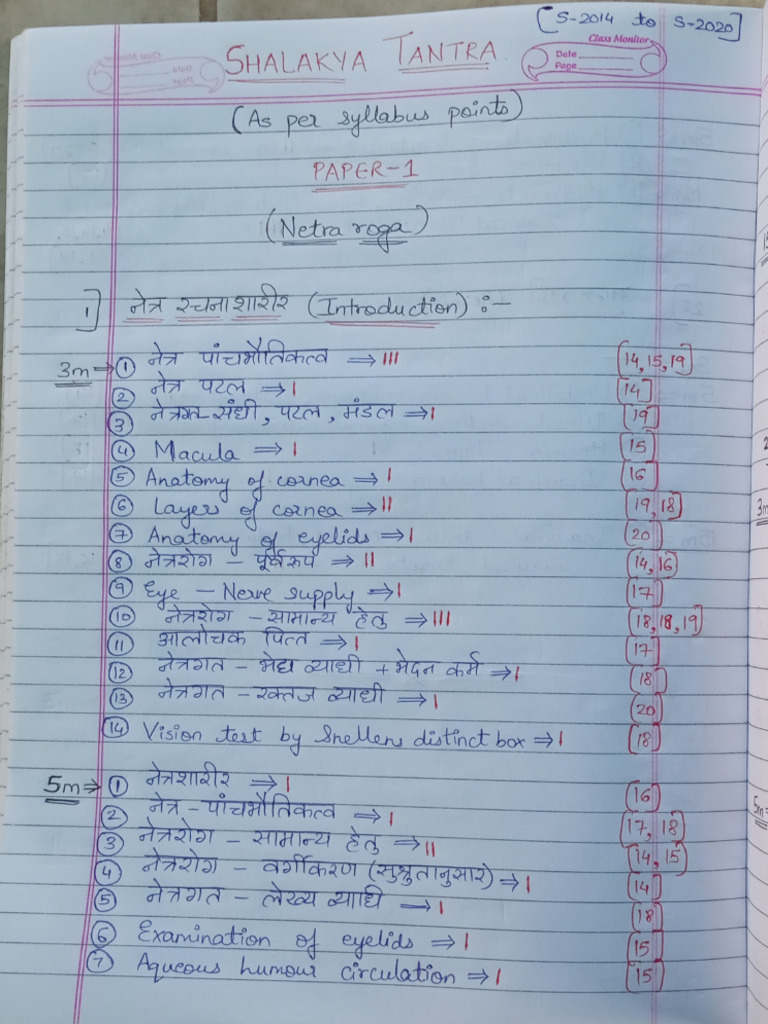 [S-2014 to S-2020]
Class Monitor
SHALAKYA TANTRA
Date
Page
(As per syllabus points)
PAPER-1
(Netra roga)
1] नेत्र रचनाशारीर (Introduction) :-
3m → ① नेत्र पांचभौतिकत्व ⇒ III [14, 15, 19]
② नेत्र पटल ⇒ I [14]
③ नेत्रगत संधी, पटल, मंडल ⇒ I [19]
④ Macula ⇒ I [15]
⑤ Anatomy of cornea ⇒ I [16]
⑥ Layers of cornea ⇒ II [19, 18]
⑦ Anatomy of eyelids ⇒ I [20]
⑧ नेत्ररोग - पूर्वरुप ⇒ II [14, 16]
⑨ Eye - Nerve supply ⇒ I [17]
⑩ नेत्ररोग - सामान्य हेतु ⇒ III [18, 18, 19]
⑪ आलोचक पित्त ⇒ I [17]
⑫ नेत्रगत - भेद्य व्याधी + भेदन कर्म ⇒ I [18]
⑬ नेत्रगत - रक्तज व्याधी ⇒ I [20]
⑭ Vision test by Snellens distinct box ⇒ I [18]
5m ⇒ ① नेत्रशारीर ⇒ I [16]
② नेत्र - पांचभौतिकत्व ⇒ I [17, 18]
③ नेत्ररोग - सामान्य हेतु ⇒ II [14, 15]
④ नेत्ररोग - वर्गीकरण (सुश्रुतानुसार) ⇒ I [14]
⑤ नेत्रगत - लेख्य व्याधि → I [18]
⑥ Examination of eyelids ⇒ I [15]
⑦ Aqueous humour circulation ⇒ I [15]